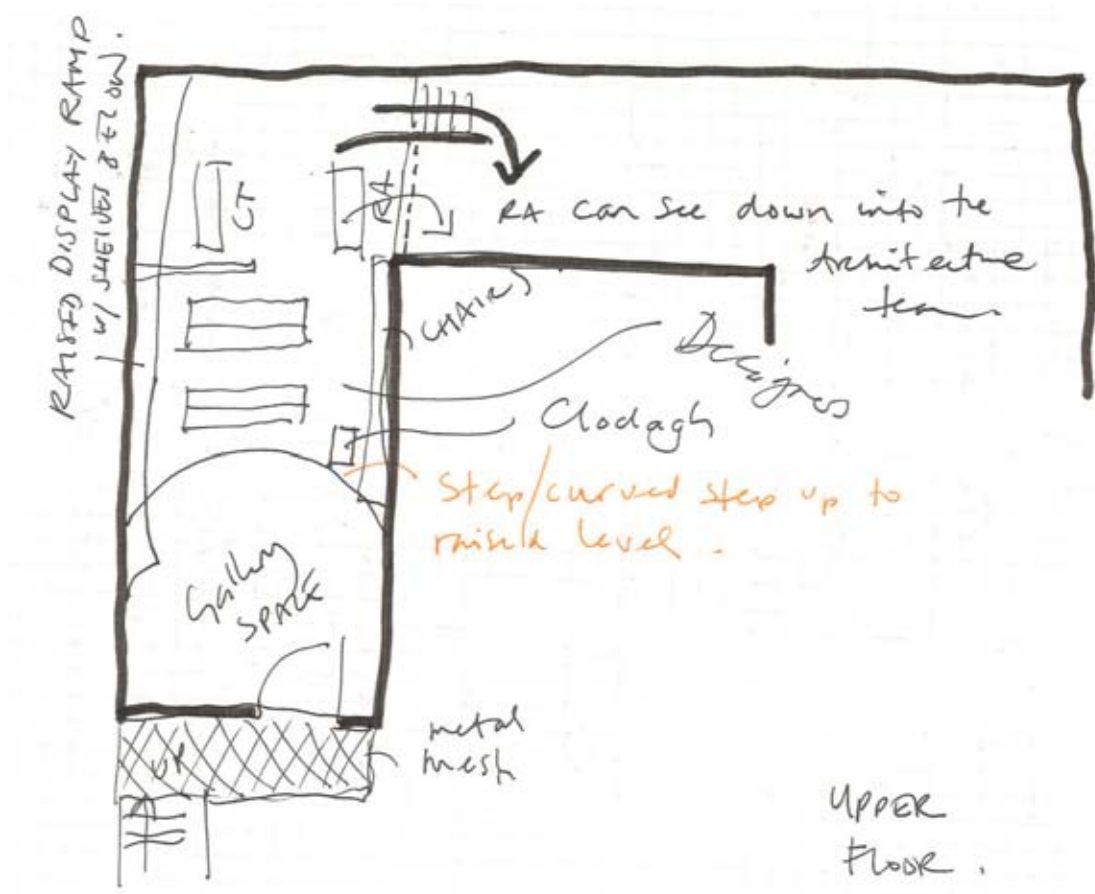 RAISED DISPLAY RAMP
w/ SHELVES & FLOOR.
CT
RA
RA can see down into the
Architecture
team.
CHAIRS
Designers
Clodagh
Step/curved step up to
raised level.
Gallery
SPACE
metal
mesh
UP
UPPER
FLOOR.